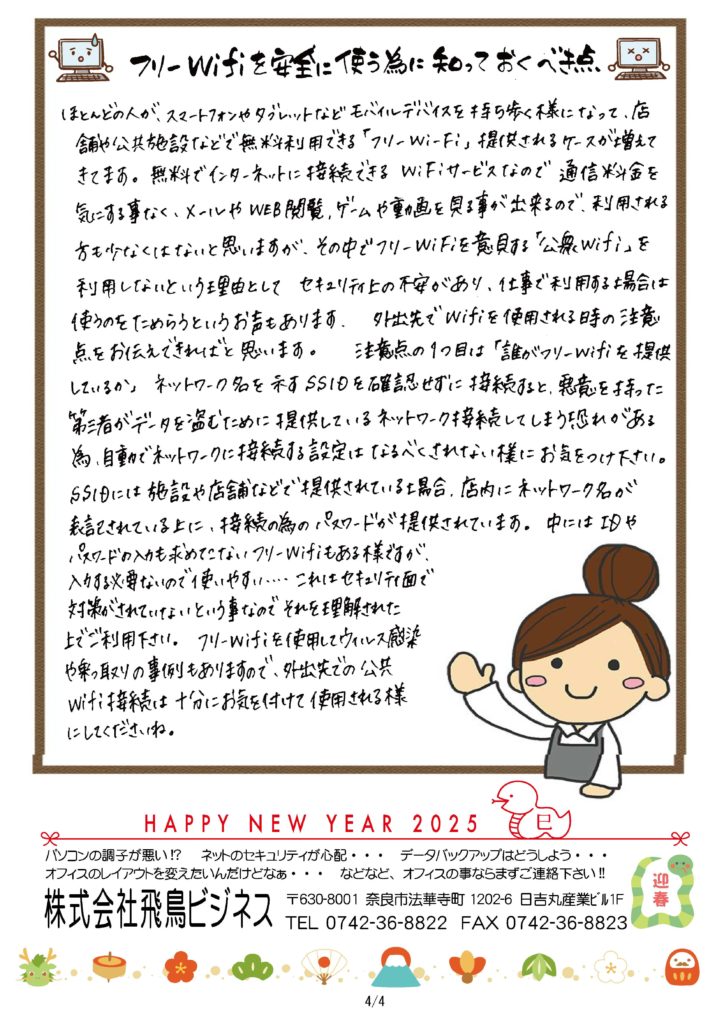 フリーWifiを安全に使う為に知っておくべき点
ほとんどの人が、スマートフォンやタブレットなどモバイルデバイスを持ち歩く様になって、店
舗や公共施設などで無料利用できる「フリーWi-Fi」提供されるケースが増えて
きてます。無料でインターネットに接続できるWiFiサービスなので通信料金を
気にする事なく、メールやWEB閲覧、ゲームや動画を見る事が出来るので、利用される
方も少なくはないと思いますが、その中でフリーWiFiを意見する「公衆Wifi」を
利用しないという理由として セキュリティ上の不安があり、仕事で利用する場合は
使うのをためらうというお声もあります。 外出先でWifiを使用される時の注意
点をお伝えできればと思います。 注意点の1つ目は「誰がフリーWifiを提供
しているか」ネットワーク名を示すSSIDを確認せずに接続すると、悪意を持った
第三者がデータを盗むために提供しているネットワーク接続してしまう恐れがある
為、自動でネットワークに接続する設定はなるべくされない様にお気をつけ下さい。
SSIDには施設や店舗などで提供されている場合、店内にネットワーク名が
表記されている上に、接続の為のパスワードが提供されています。中にはIDや
パスワードの入力も求めてこないフリーWifiもある様ですが、
入力する必要ないので使いやすい‥‥これはセキュリティ面で
対策がされていないという事なのでそれを理解された
上でご利用下さい。 フリーWifiを使用してウィルス感染
や乗っ取りの事例もありますので、外出先での公共
Wifi接続は十分にお気を付けて使用される様
にしてくださいね。
HAPPY NEW YEAR 2025
巳
パソコンの調子が悪い!? ネットのセキュリティが心配・・・ データバックアップはどうしよう・・・
オフィスのレイアウトを変えたいんだけどなぁ・・・ などなど、オフィスの事ならまずご連絡下さい!!
迎春
株式会社飛鳥ビジネス
〒630-8001 奈良市法華寺町1202-6 日吉丸産業ビル1F
TEL 0742-36-8822 FAX 0742-36-8823
4/4